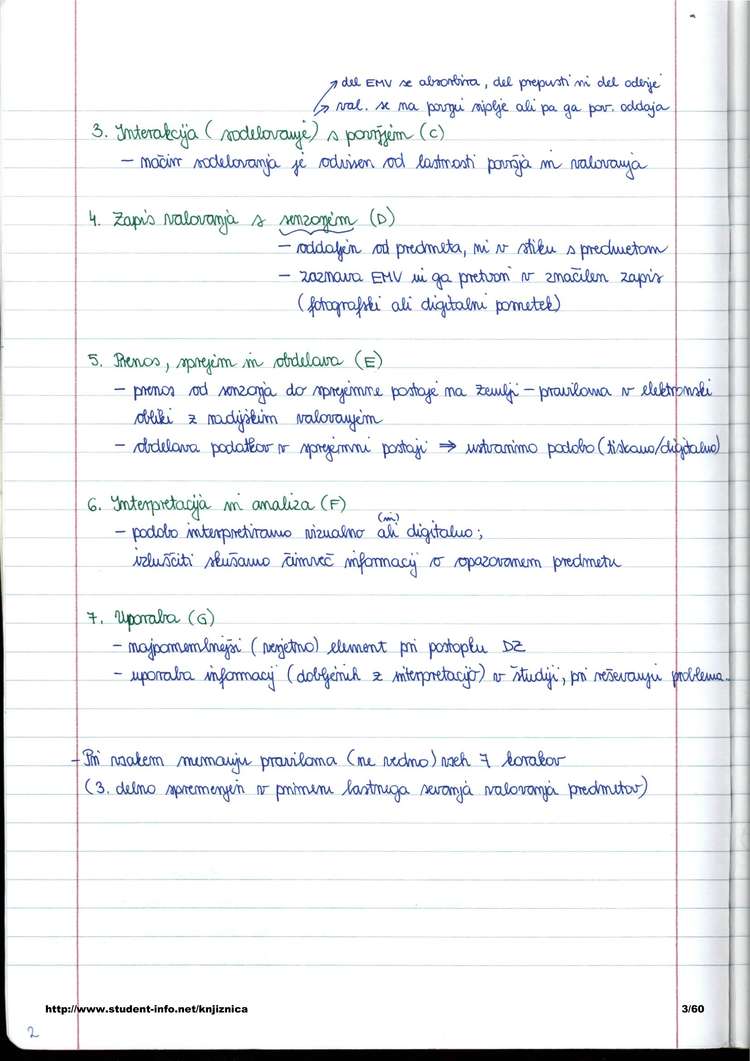 del EMV se absorbira, del prepusti in del odbije
val. se na površj siplje ali pa ga pov. oddaja
3. Interakcija (sodelovanje) s površjem (C)
– način sodelovanja je odvisen od lastnosti površja in valovanja
4. Zapis valovanja s senzorjem (D)
– oddaljen od predmeta, ni v stiku s predmetom
– zaznava EMV in ga pretvori v značilen zapis
(fotografski ali digitalni posnetek)
5. Prenos, sprejem in obdelava (E)
– prenos od senzorja do sprejemne postaje na Zemlji – praviloma v elektronski
obliki z radijskim valovanjem
– obdelava podatkov v sprejemni postaji ⇒ ustvarimo podobo (tiskano/digitalno)
6. Interpretacija in analiza (F)
(in)
– podobo interpretiramo vizualno ali digitalno;
izluščiti skušamo čimveč informacij o opazovanem predmetu
7. Uporaba (G)
– najpomembnejši (verjetno) element pri postopku DZ
– uporaba informacij (dobljenih z interpretacijo) v študiji, pri reševanju problema.
– Pri vsakem snemanju praviloma (ne vedno) vseh 7 korakov
(3. delno spremenjen v primeru lastnega sevanja valovanja predmetov)
http://www.student-info.net/knjiznica
3/60
2